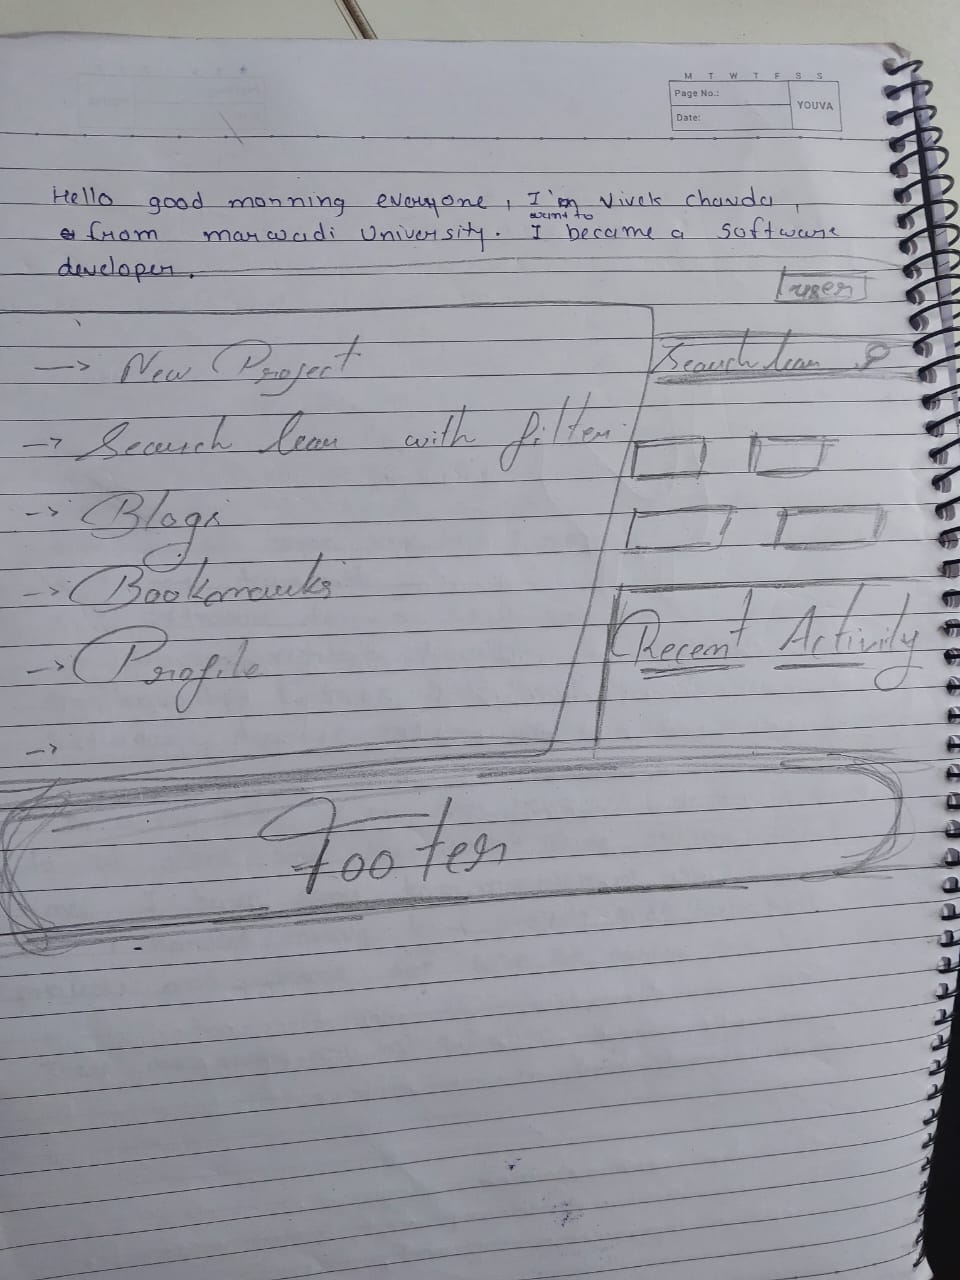 M T W T F S S
Page No.:
Date:
YOUVA
Hello good morning everyone, I'm Vivek chanda,
from marwadi University. I want to became a software
developer.
user
→ New Project
Search lean
→ Search lean with filter
→ Blogs
→ Bookmarks
→ Profile
Recent Activity
→
Footer